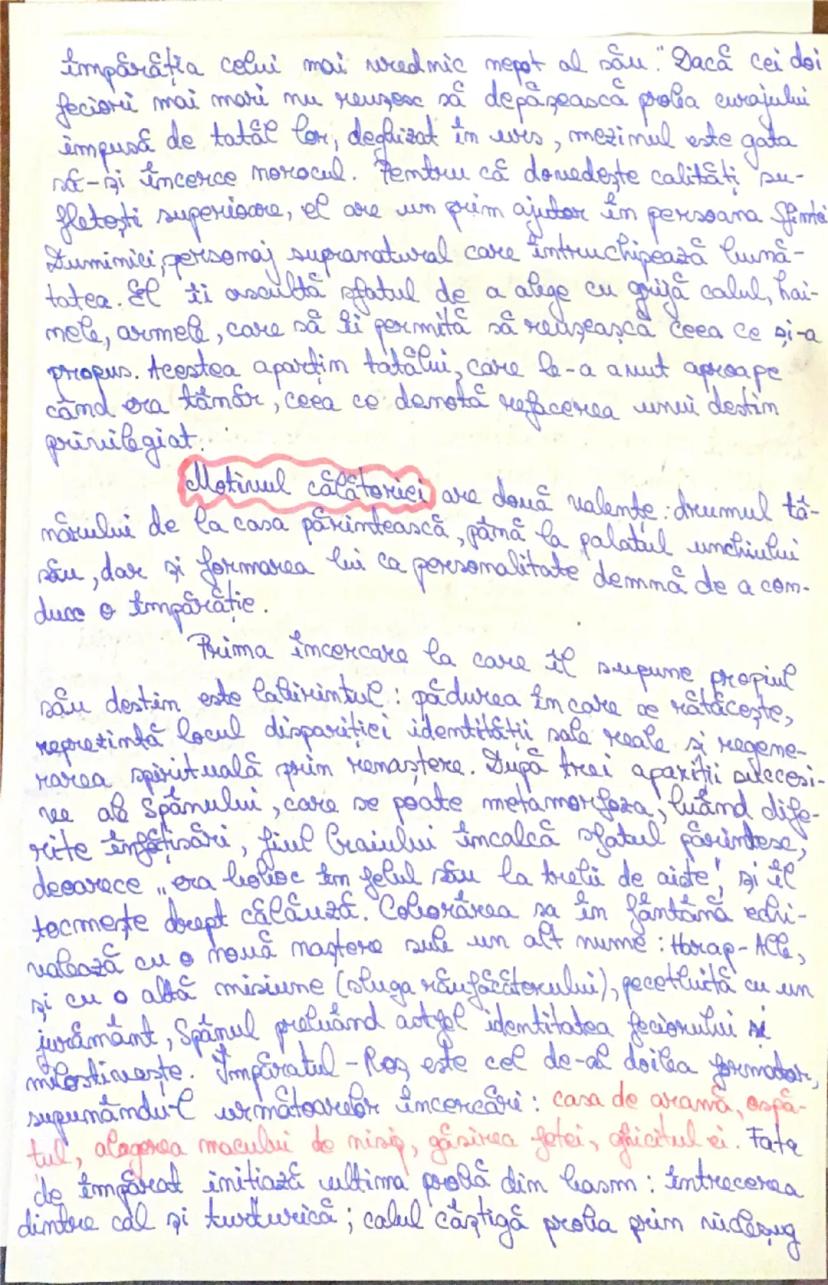 împărăția celui mai vrednic nepot al său." Dacă cei doi
feciori mai mari nu reușesc să depășească proba curajului
impusă de tatăl lor, deghizat în urs, mezinul este gata
să-și încerce norocul. Pentru că dovedește calități su-
fletești superioare, el are un prim ajutor în persoana Sfintei
Duminici, personaj supranatural care întruchipează bună-
tatea. El îi ascultă sfatul de a alege cu grijă calul, hai-
nele, armele, care să îi permită să reușească ceea ce și-a
propus. Acestea aparțin tatălui, care le-a avut aproape
când era tânăr, ceea ce denotă refacerea unui destin
privilegiat.
Motivul călătoriei are două valențe: drumul tâ-
nărului de la casa părintească, până la palatul unchiului
său, dar și formarea lui ca personalitate demnă de a con-
duce o împărăție.
Prima încercare la care îl supune propiul
său destin este labirintul: pădurea în care se rătăcește,
reprezintă locul dispariției identității sale reale și regene-
rarea spirituală prin renaștere. După trei apariții succesi-
ve ale Spânului, care se poate metamorfoza, luând dife-
rite înfățisări, fiul Craiului încalcă sfatul părintesc,
deoarece „era boboc în felul său la trebi de aiste", și îl
tocmește drept călăuză. Coborârea sa în fântână echi-
valează cu o nouă naștere sub un alt nume: Harap-Alb,
și cu o altă misiune (sluga răufăcătorului), pecetluită cu un
jurământ, Spânul preluând astfel identitatea feciorului și
milostivește. Împăratul-Roș este cel de-al doilea formator,
supunându-l următoarelor încercări: casa de aramă, ospă-
tul, alegerea macului de nisip, găsirea fetei, ghicitul ei. Fata
de împărat initiază ultima probă din basm: întrecerea
dintre cal și turturică; calul câștigă proba prin vicleșug